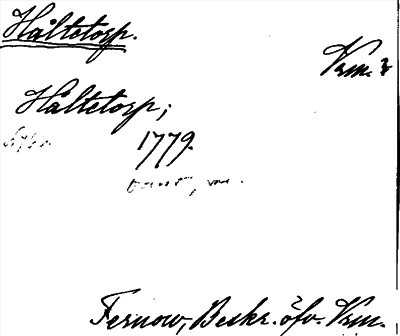 Håltetorp.
Vrm. ?
Håltetorp;
1779.
Fernow, Beskr. öfv. Vrm.